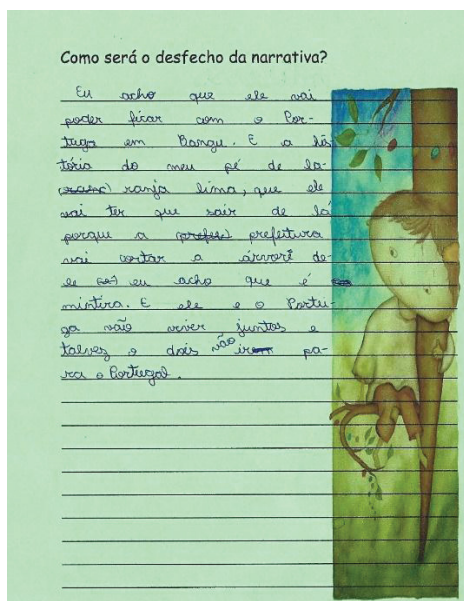 Como será o desfecho da narrativa?
Eu acho que ele vai
poder ficar com o Por-
tuga em Bangu. E a hís
tória do meu pé de la-
ranja lima, que ele
vai ter que sair de lá
porque a prefeitura
vai cortar a árvorē de-
le eu acho que é
mintira. E ele e o Portu-
ga vaõ viver juntos e
talvez o dois vão ir pa-
ra o Portugal.